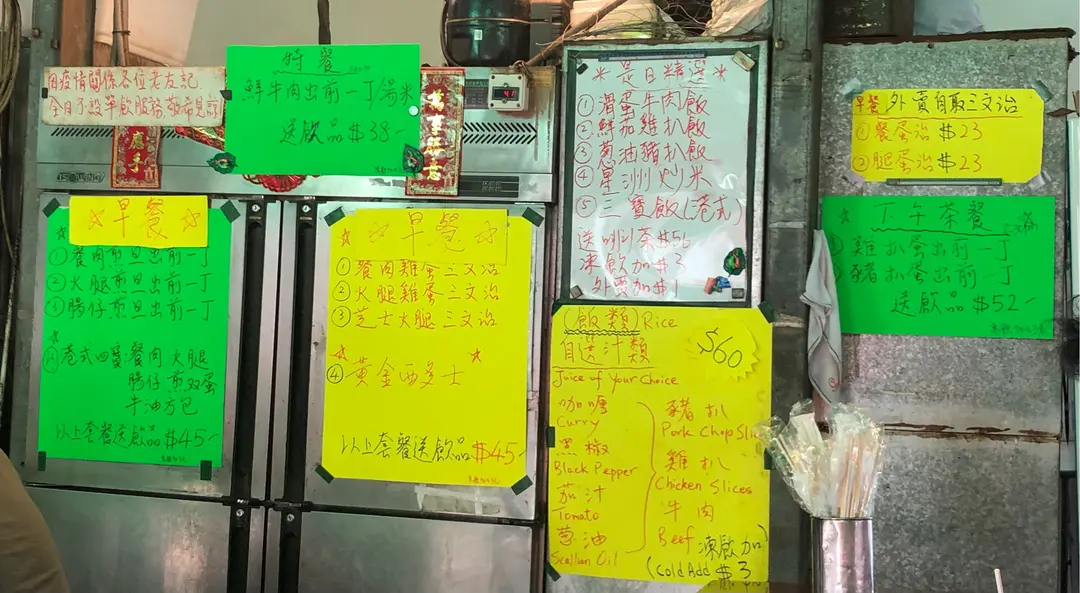 因疫情關係各位老友記
全日不設早飲服務敬希見諒
特餐
鮮牛肉出前一丁/湯米
送飲品$38-
應手
早餐
① 餐肉煎旦出前一丁
② 火腿煎旦出前一丁
③ 腸仔煎旦出前一丁
④ 港式四寶:餐肉 火腿
腸仔 煎双蛋
牛油方包
以上套餐送飲品$45-
早餐
① 餐肉雞蛋三文治
② 火腿雞蛋三文治
③ 芝士火腿三文治
④ 黃金西多士
以上套餐送飲品$45-
是日精選
① 滑蛋牛肉飯
② 鮮茄雞扒飯
③ 蔥油豬扒飯
④ 星洲炒米
⑤ 三寶飯(港式)
凍飲加$3
外賣加$1
(飯類) Rice
$60
自選汁類
Juice of Your Choice
咖喱
Curry
黑椒
Black Pepper
茄汁
Tomato
蔥油
Scallion Oil
豬扒
Pork Chop
雞扒
Chicken Slices
牛肉
Beef
凍飲加
(Cold Add $3
早餐 外賣自取三文治
① 餐蛋治 $23
② 腿蛋治 $23
下午茶餐
① 雞扒蛋出前一丁
② 豬扒蛋出前一丁
送飲品$52-
凍飲加3元